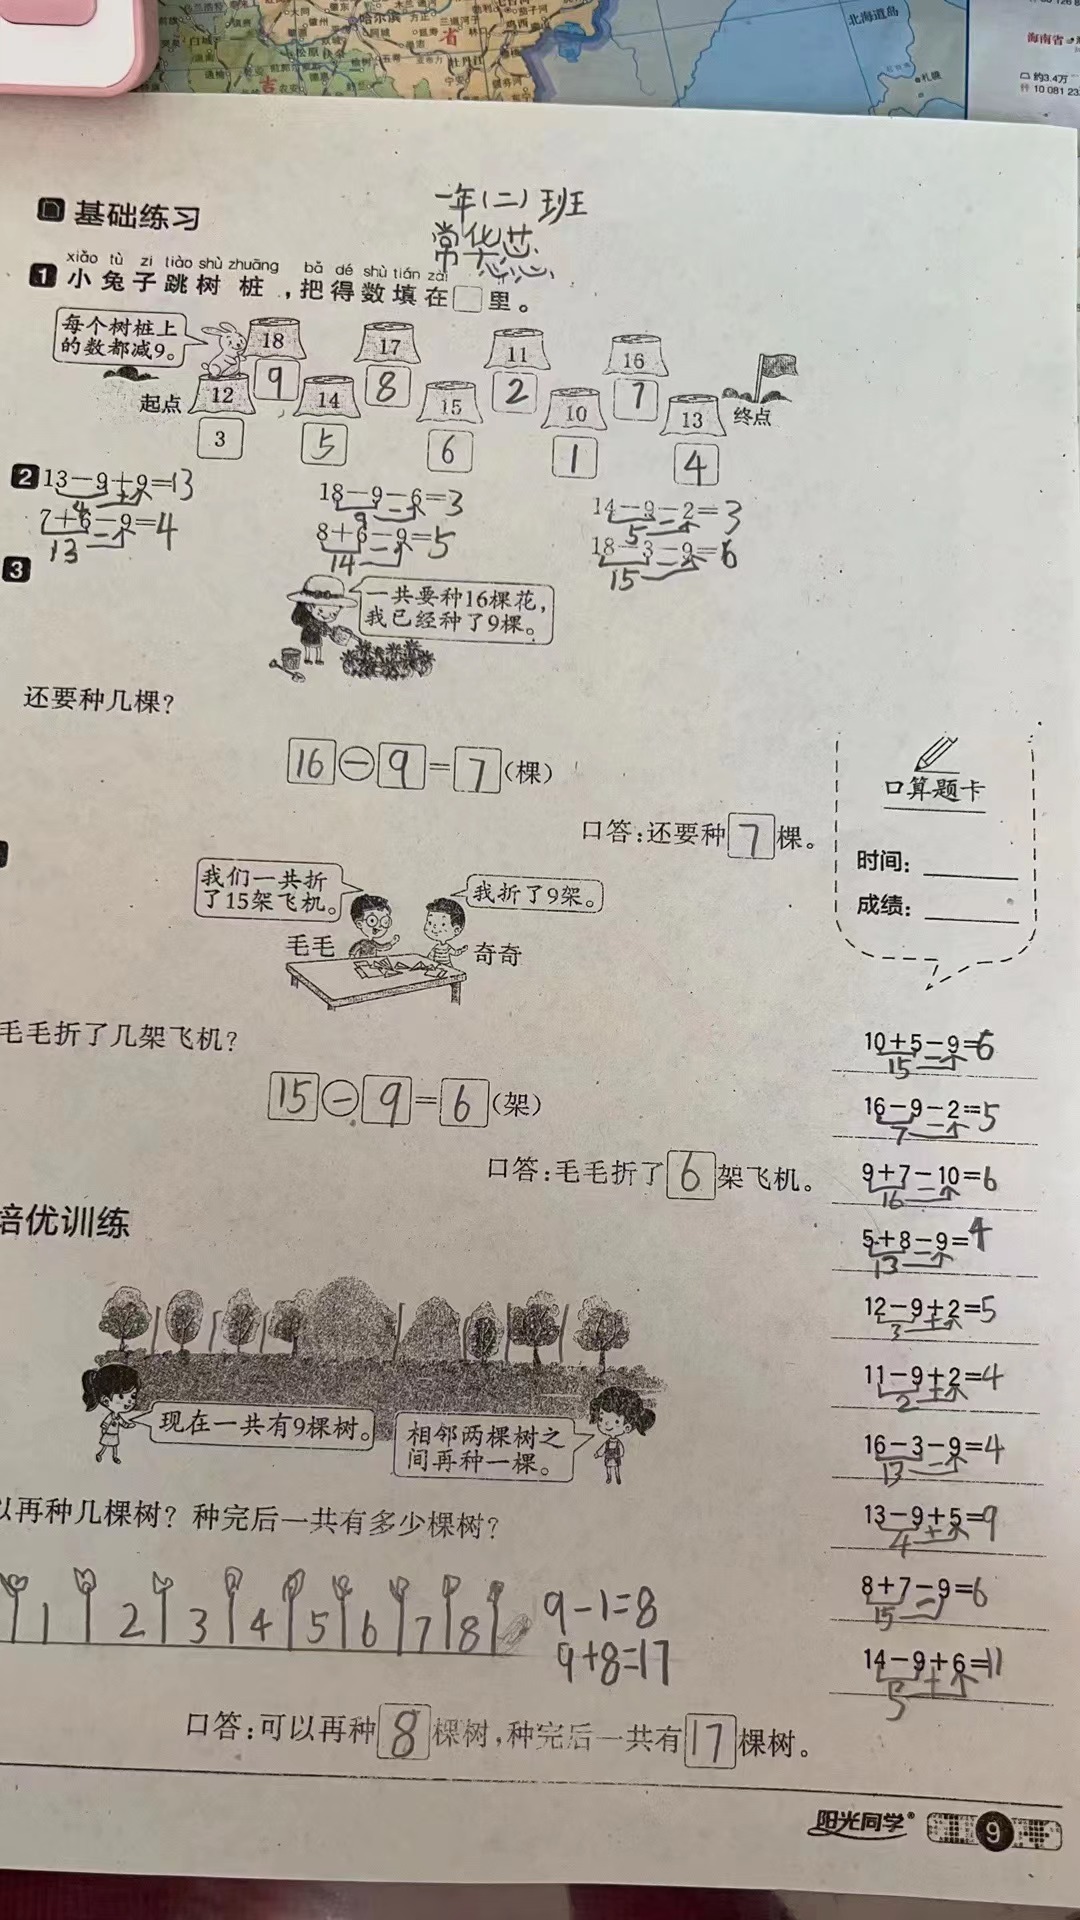 哈尔滨
省
吉
北海道岛
札幌
海南省
约3.4万
10 081 23
一年(二)班
基础练习
常华芯
xiǎo tù zi tiào shù zhuāng bǎ dé shù tián zài
1 小兔子跳树桩,把得数填在□里。
每个树桩上
的数都减9。
18 17 11 16
9 8 2 7
起点 12 14 15 10 13 终点
3 5 6 1 4
2 13-9+9=13 18-9-6=3 14-9-2=3
4 9 5
7+6-9=4 8+6-9=5 18-3-9=6
13 14 15
3
一共要种16棵花,
我已经种了9棵。
还要种几棵?
16-9=7(棵)
口答:还要种7棵。
我们一共折
了15架飞机。
我折了9架。
毛毛 奇奇
毛毛折了几架飞机?
15-9=6(架)
口答:毛毛折了6架飞机。
培优训练
现在一共有9棵树。
相邻两棵树之
间再种一棵。
以再种几棵树?种完后一共有多少棵树?
1 2 3 4 5 6 7 8
9-1=8
9+8=17
口答:可以再种8棵树,种完后一共有17棵树。
口算题卡
时间:
成绩:
10+5-9=6
15
16-9-2=5
7
9+7-10=6
16
5+8-9=4
13
12-9+2=5
3
11-9+2=4
2
16-3-9=4
13
13-9+5=9
4
8+7-9=6
15
14-9+6=11
5
阳光同学®
9